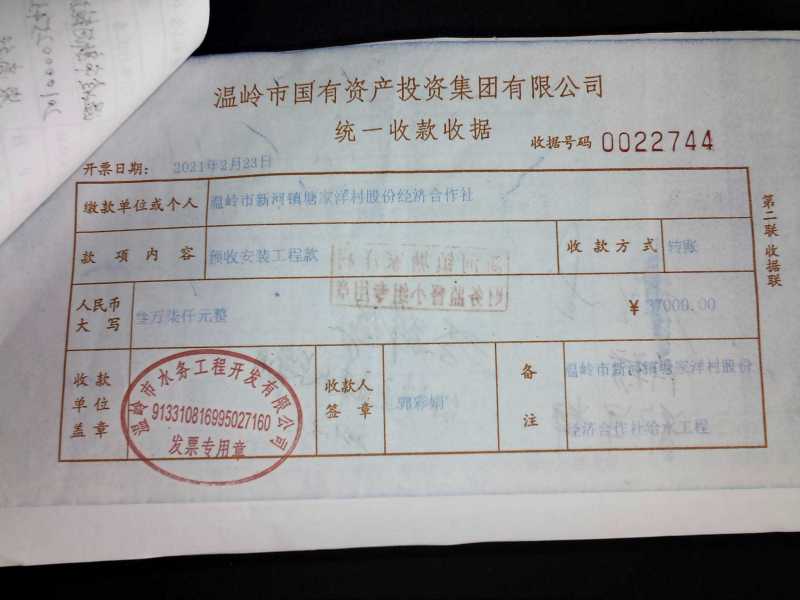 温岭市国有资产投资集团有限公司
统一收款收据
收据号码 0022744
开票日期： 2021年2月23日
缴款单位或个人 温岭市新河镇塘家洋村股份经济合作社
款项内容 预收安装工程款 收款方式 转账
人民币大写 叁万柒仟元整 ¥ 37000.00
收款单位盖章
温岭市水务工程开发有限公司
913310816995027160
发票专用章
收款人签章 郭彩娟
备注 温岭市新河镇塘家洋村股份
经济合作社给水工程
第二联 收据联
财务监督小组专用章